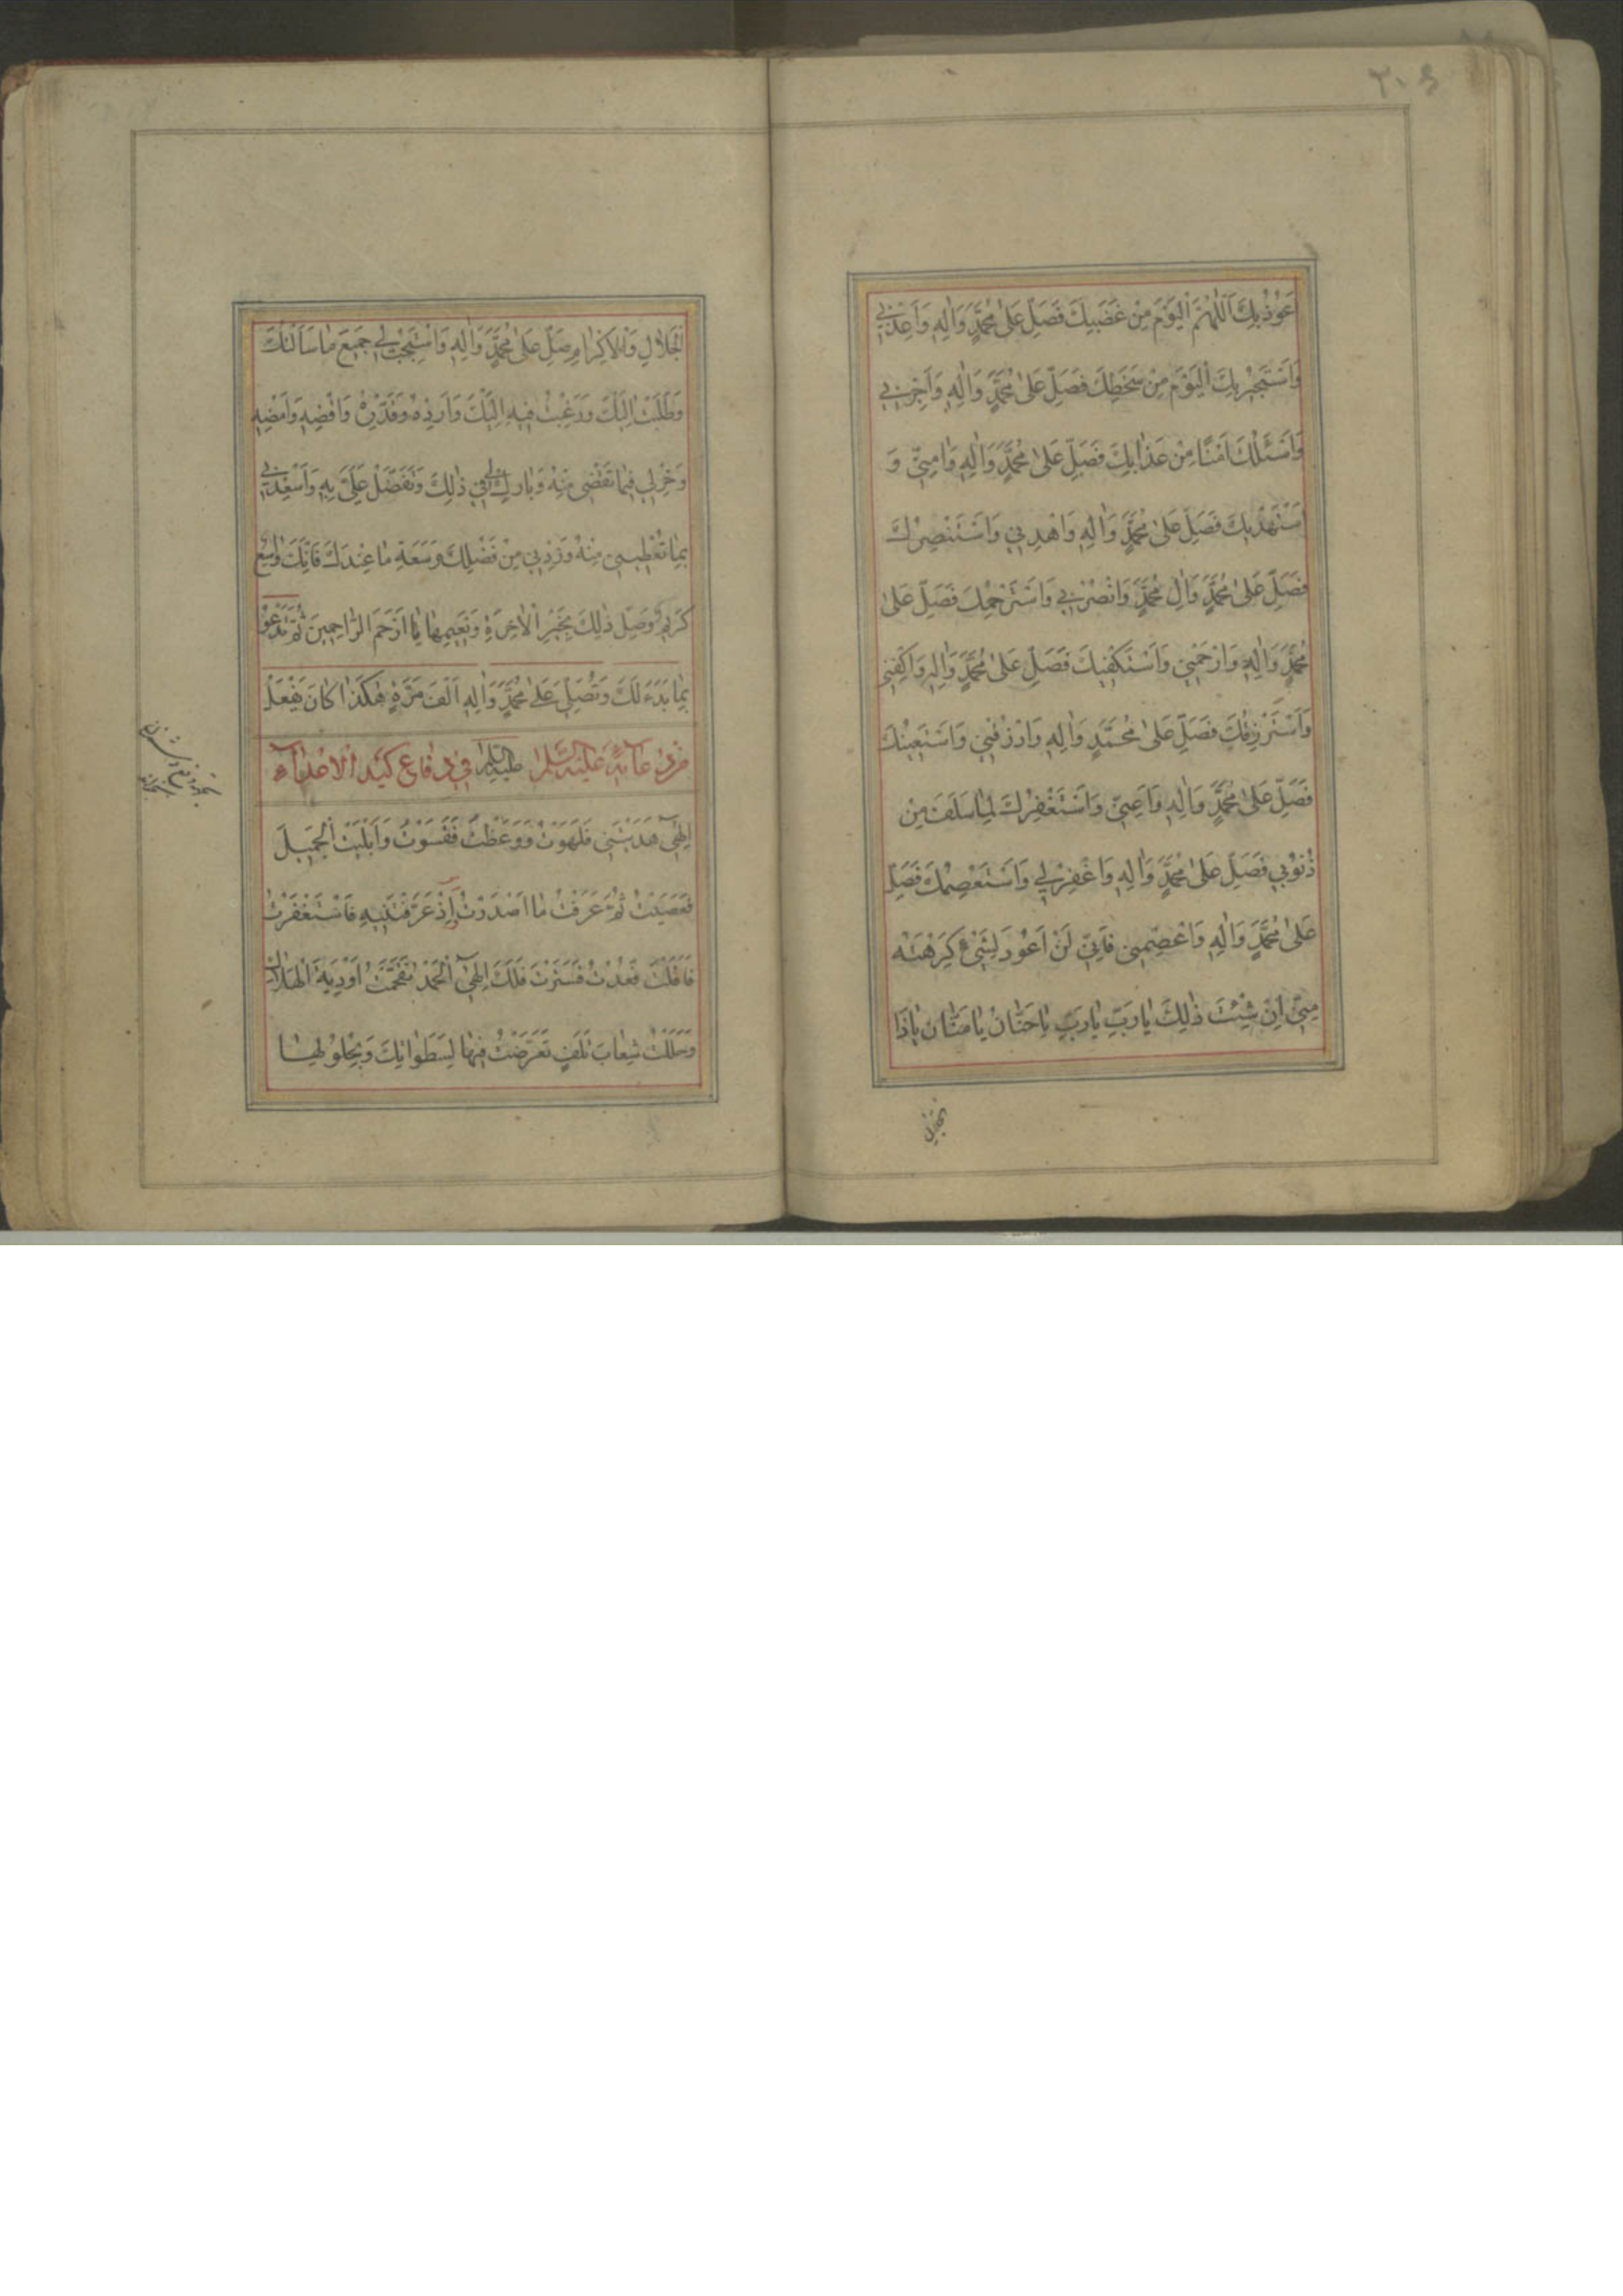 ۲۰۶
اَعُوذُ بِكَ اَللّٰهُمَّ الْيَوْمَ مِنْ غَضَبِكَ فَصَلِّ عَلىٰ مُحَمَّدٍ وَاٰلِهِ وَاَعِذْنِي
وَاَسْتَجِيرُ بِكَ الْيَوْمَ مِنْ سَخَطِكَ فَصَلِّ عَلىٰ مُحَمَّدٍ وَاٰلِهِ وَاَجِرْنِي
وَاَسْئَلُكَ اَمْنًا مِنْ عَذَابِكَ فَصَلِّ عَلىٰ مُحَمَّدٍ وَاٰلِهِ وَاٰمِنِّي وَ
اَسْتَهْدِيكَ فَصَلِّ عَلىٰ مُحَمَّدٍ وَاٰلِهِ وَاهْدِنِي وَاَسْتَنْصِرُكَ
فَصَلِّ عَلىٰ مُحَمَّدٍ وَاٰلِ مُحَمَّدٍ وَانْصُرْنِي وَاَسْتَرْحِمُكَ فَصَلِّ عَلىٰ
مُحَمَّدٍ وَاٰلِهِ وَارْحَمْنِي وَاَسْتَكْفِيكَ فَصَلِّ عَلىٰ مُحَمَّدٍ وَاٰلِهِ وَاكْفِنِي
وَاَسْتَرْزِقُكَ فَصَلِّ عَلىٰ مُحَمَّدٍ وَاٰلِهِ وَارْزُقْنِي وَاَسْتَعِينُكَ
فَصَلِّ عَلىٰ مُحَمَّدٍ وَاٰلِهِ وَاَعِنِّي وَاَسْتَغْفِرُكَ لِمَا سَلَفَ مِنْ
ذُنُوبِي فَصَلِّ عَلىٰ مُحَمَّدٍ وَاٰلِهِ وَاغْفِرْ لِي وَاَسْتَعْصِمُكَ فَصَلِّ
عَلىٰ مُحَمَّدٍ وَاٰلِهِ وَاعْصِمْنِي فَاِنِّي لَنْ اَعُودَ لِشَيْءٍ كَرِهْتَهُ
مِنِّي اِنْ شِئْتَ ذٰلِكَ يَا رَبِّ يَا رَبِّ يَا حَنَّانُ يَا مَنَّانُ يَا ذَا
الجلال
الْجَلَالِ وَالْاِكْرَامِ صَلِّ عَلىٰ مُحَمَّدٍ وَاٰلِهِ وَاسْتَجِبْ لِي جَمِيعَ مَا سَاَلْتُكَ
وَطَلَبْتُ اِلَيْكَ وَرَغِبْتُ فِيهِ اِلَيْكَ وَاَرِدْهُ وَقَدِّرْهُ وَاقْضِهِ وَاَمْضِهِ
وَخِرْ لِي فِيمَا تَقْضِي مِنْهُ وَبَارِكْ لِي فِي ذٰلِكَ وَتَفَضَّلْ عَلَيَّ بِهِ وَاَسْعِدْنِي
بِمَا تُعْطِينِي مِنْهُ وَزِدْنِي مِنْ فَضْلِكَ وَسَعَةِ مَا عِنْدَكَ فَاِنَّكَ وَاسِعٌ
كَرِيمٌ وَصِلْ ذٰلِكَ بِخَيْرِ الْاٰخِرَةِ وَنَعِيمِهَا يَا اَرْحَمَ الرَّاحِمِينَ ثُمَّ تَدْعُو
بِمَا بَدَءَ لَكَ وَتُصَلِّي عَلىٰ مُحَمَّدٍ وَاٰلِهِ اَلْفَ مَرَّةٍ هٰكَذَا كَانَ يَفْعَلُ
عَلَيْهِ السَّلَام
مِنْ دُعَائِهِ عَلَيْهِ السَّلَام فِي دِفَاعِ كَيْدِ الْاَعْدَاءِ
اِلٰهِي هَدَيْتَنِي فَلَهَوْتُ وَوَعَظْتَ فَقَسَوْتُ وَاَبْلَيْتَ الْجَمِيلَ
فَعَصَيْتُ ثُمَّ عَرَفْتُ مَا اَصْدَرْتَ اِذْ عَرَّفْتَنِيهِ فَاسْتَغْفَرْتُ
فَاَقَلْتَ فَعُدْتُ فَسَتَرْتَ فَلَكَ اِلٰهِي الْحَمْدُ تَقَحَّمْتُ اَوْدِيَةَ الْهَلَاكِ
وَحَلَلْتُ شِعَابَ تَلَفٍ تَعَرَّضْتُ فِيهَا لِسَطَوَاتِكَ وَبِحُلُولِهَا